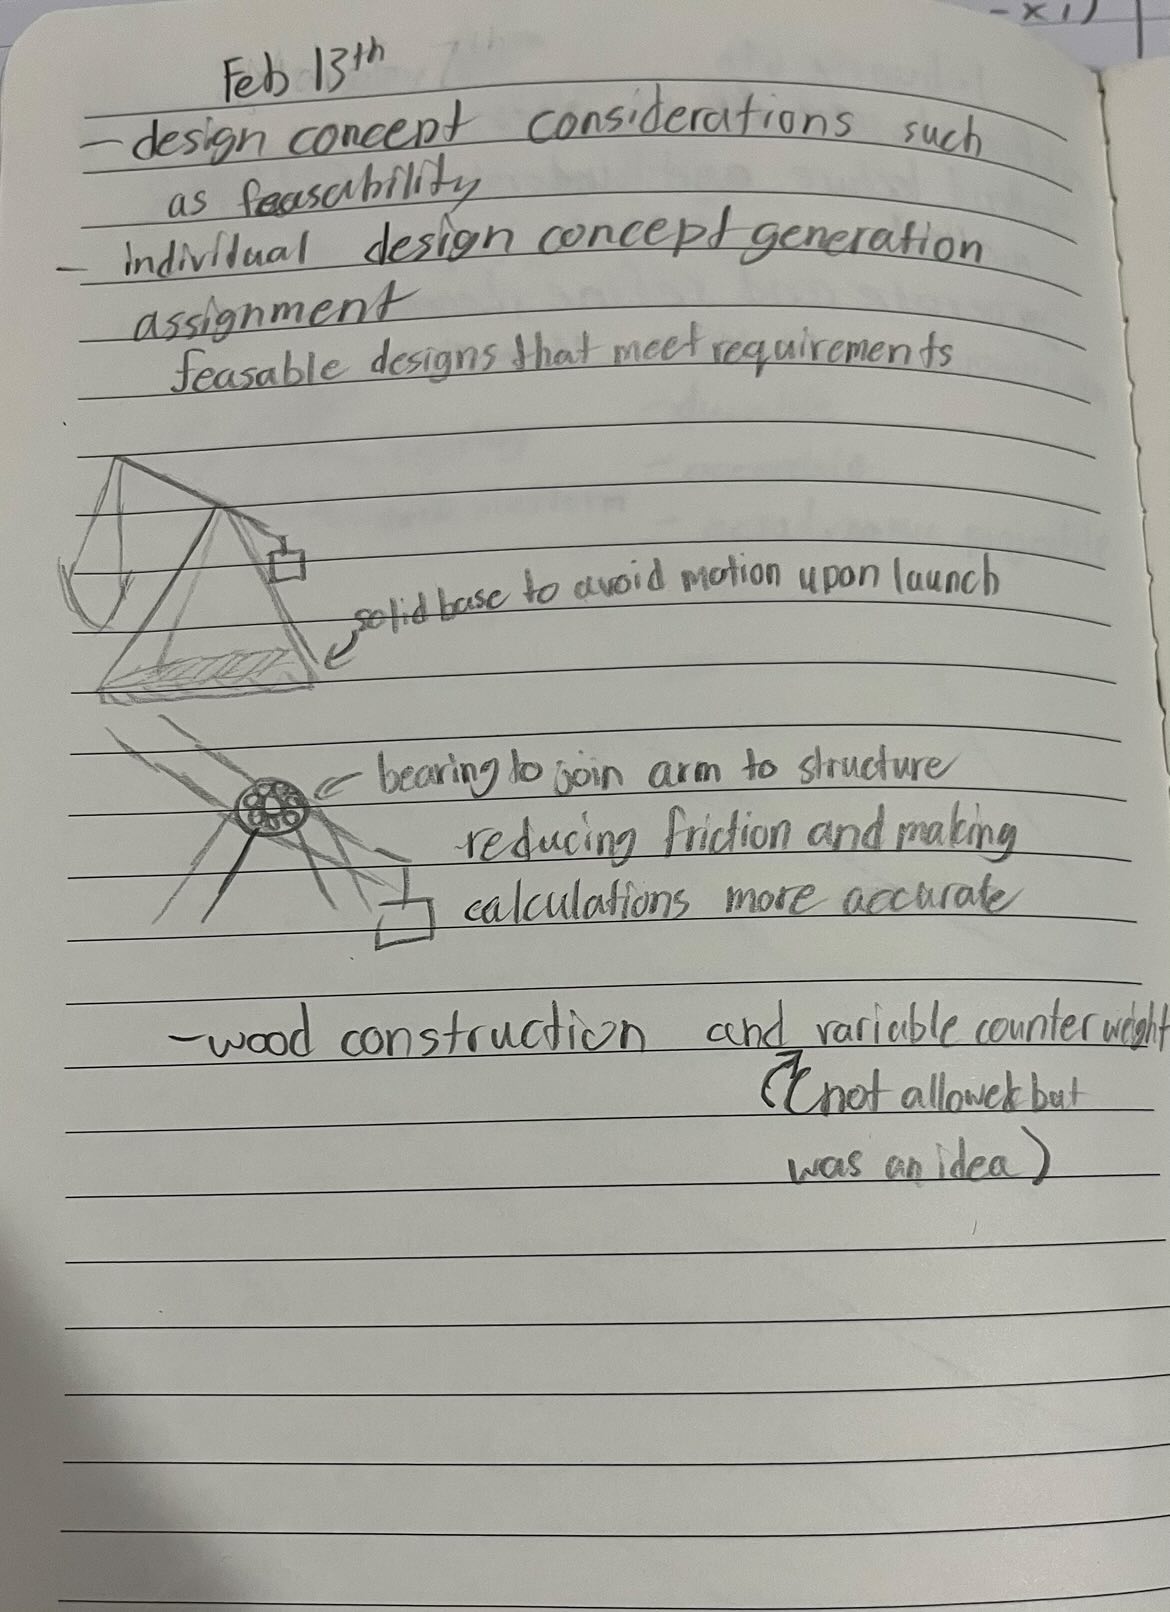 -x1)
Feb 13th
- design concept considerations such
as feasability
- individual design concept generation
assignment
feasable designs that meet requirements
solid base to avoid motion upon launch
bearing to join arm to structure
reducing friction and making
calculations more accurate
- wood construction and variable counter weight
(not allowed but
was an idea)